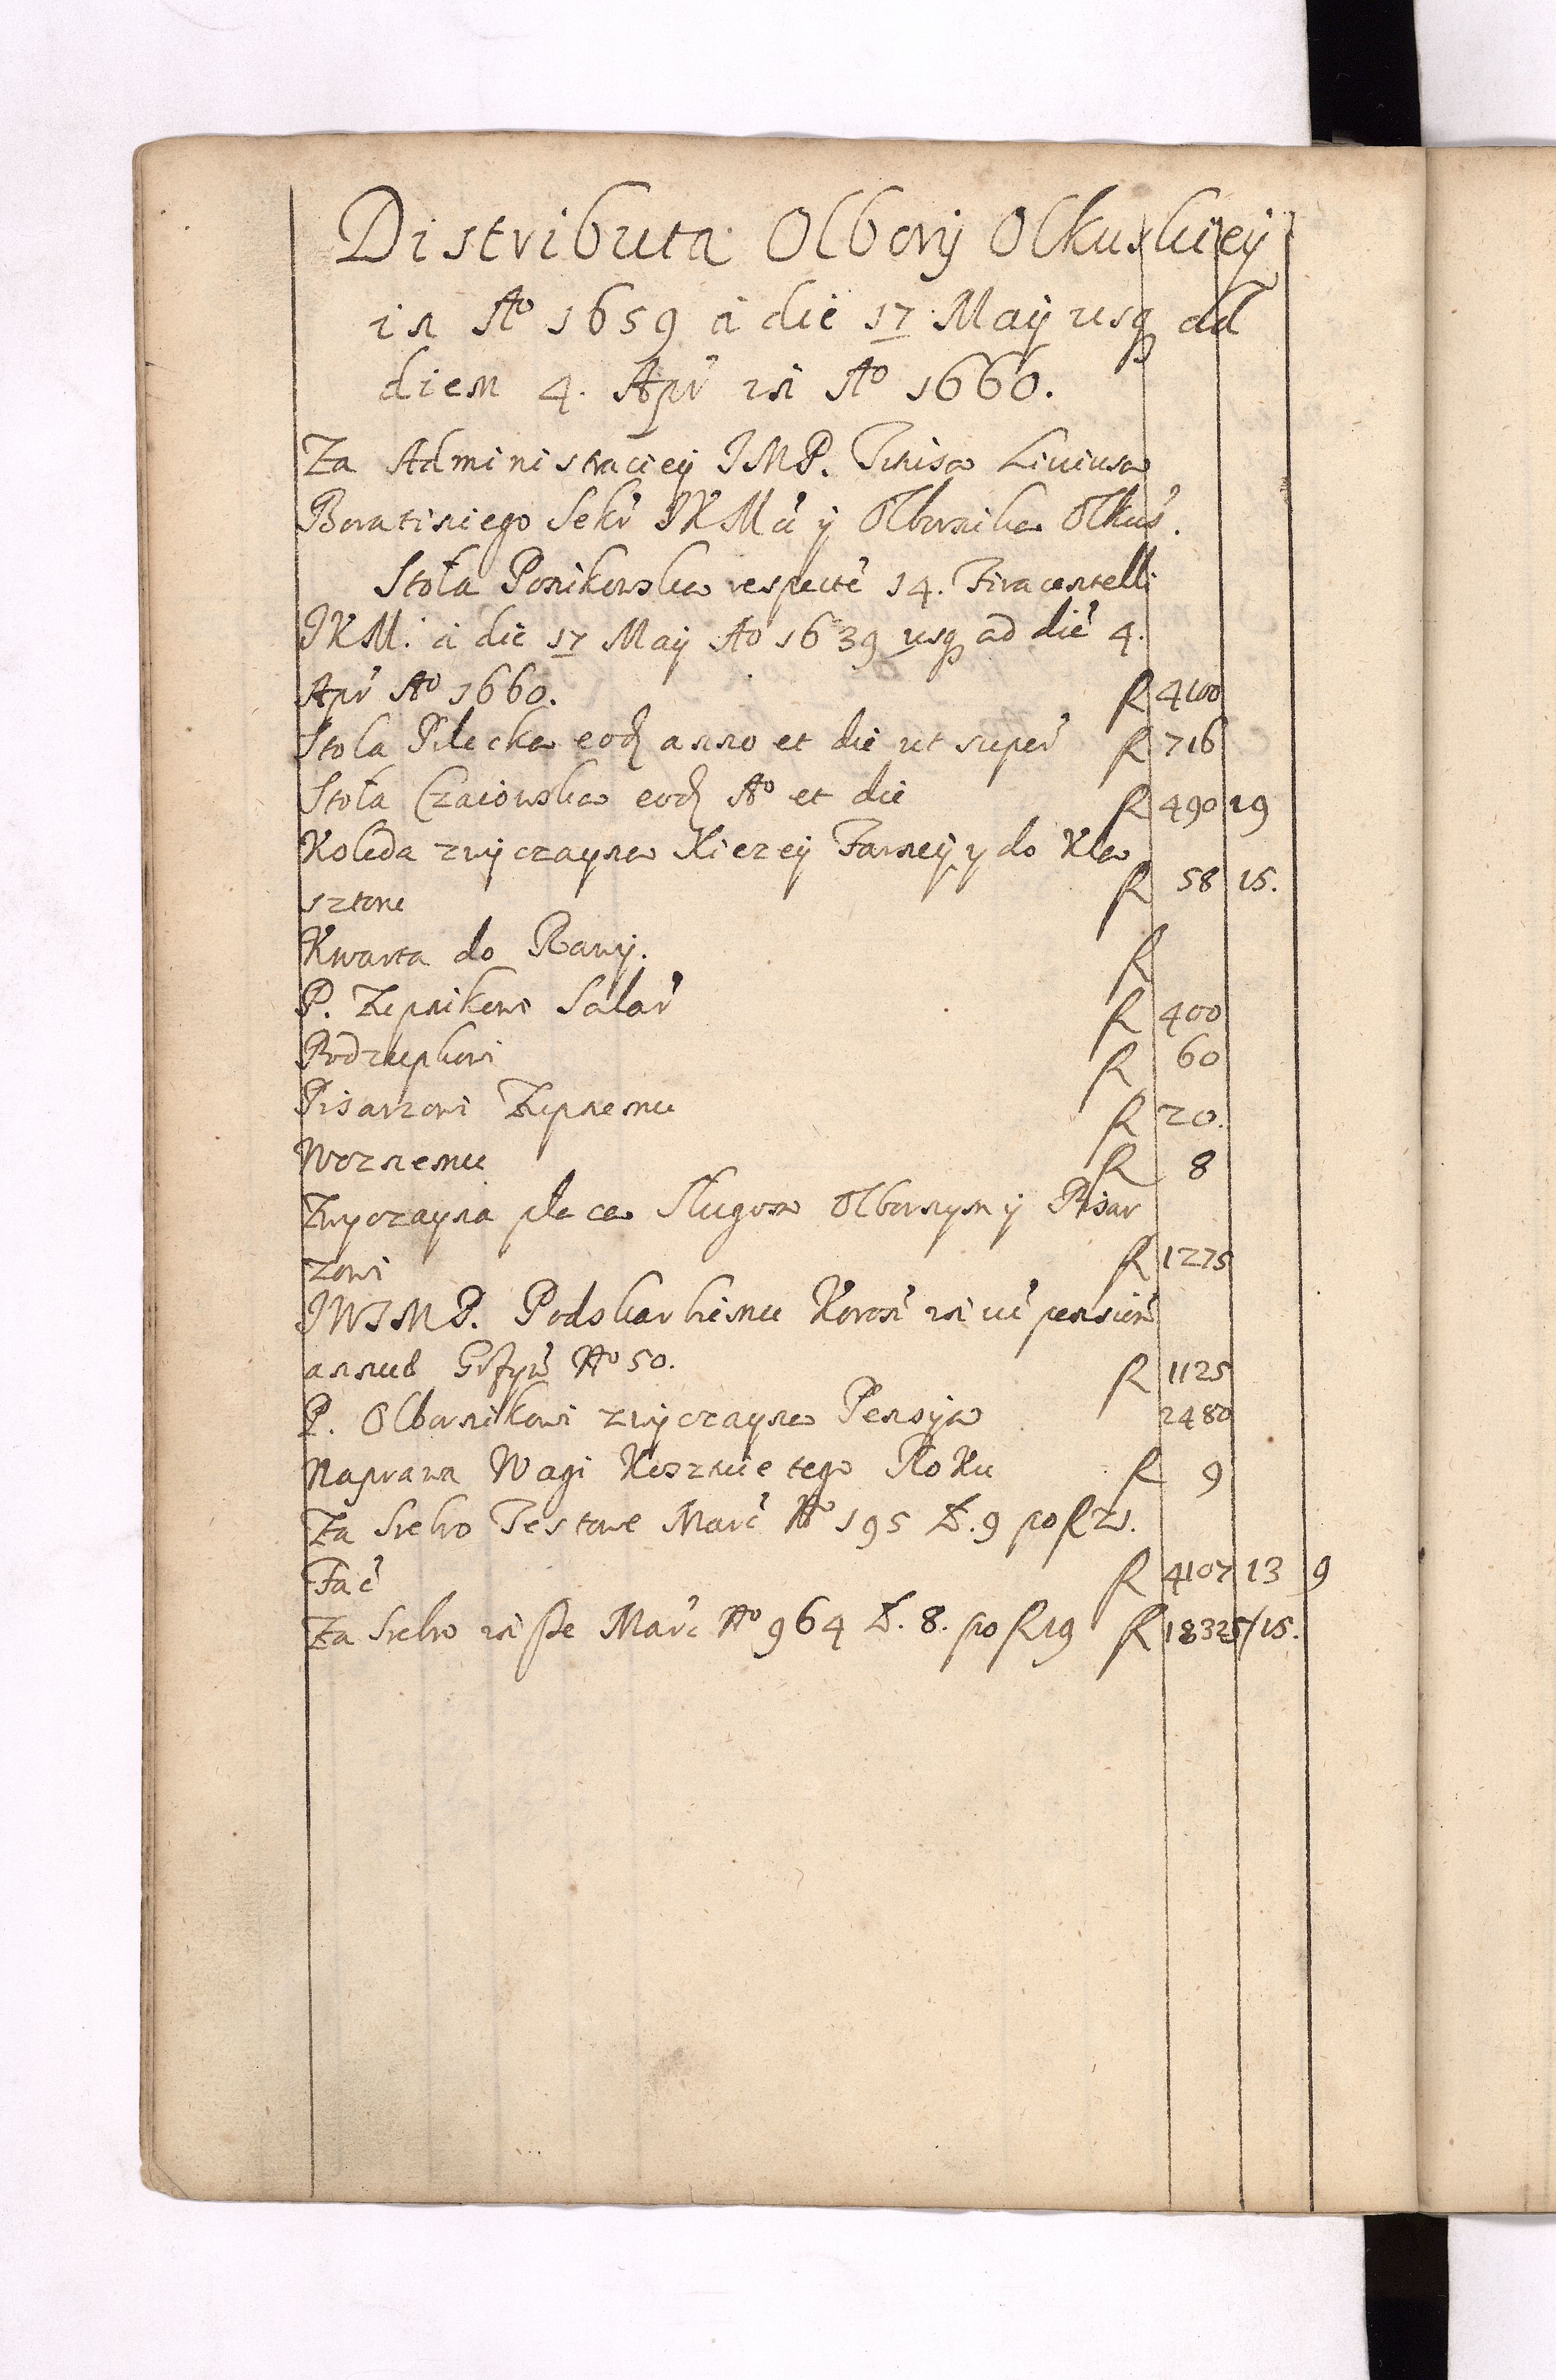 Distributa Olborÿ Olkuskieÿ
in Aº 1659 à die 17 Maÿ usq ad
diem 4. Apr in Aº 1660.
Za Administracieÿ JMP. Titusa Liviusa
Boratiniego Sekr JKMci ÿ Olbornika Olkus.
Stola Ponikowska respectu 14. Fracentelli
JKM. à die 17 Maÿ Ao 1639 usq ad die 4.
Apr Aº 1660. fl 4100
Stola Pilecka eod anno et die ut super fl 716
Stola Czaiowska eod Aº et die fl 490 19
Koleda zwÿczayna Xiezeÿ Farneÿ y do Kla
sztoru fl 58 15.
Kwarta do Rawÿ. fl
P. Zupnikowi Salar fl 400
Podzupkowi fl 60
Pisarzowi Zupnemu fl 20.
Woznemu fl 8
Zwyczayna placa Slugom Olbornym ÿ Pisar
zowi fl 1275
JWJMP. Podskarbiemu Koron in vi pension
annual Grzyw Nº 50. fl 1125
P. Olbornikowi zwÿczayna Pensÿa 2480
Naprawa Wagi Kosztuie tego Roku fl 9
Za Srebro Testowe Marc Nº 195 L. 9 po fl 21.
Fac fl 4107 13 9
Za Srebro in sse Marc Nº 964 L. 8. po fl 19 fl 18325/15.